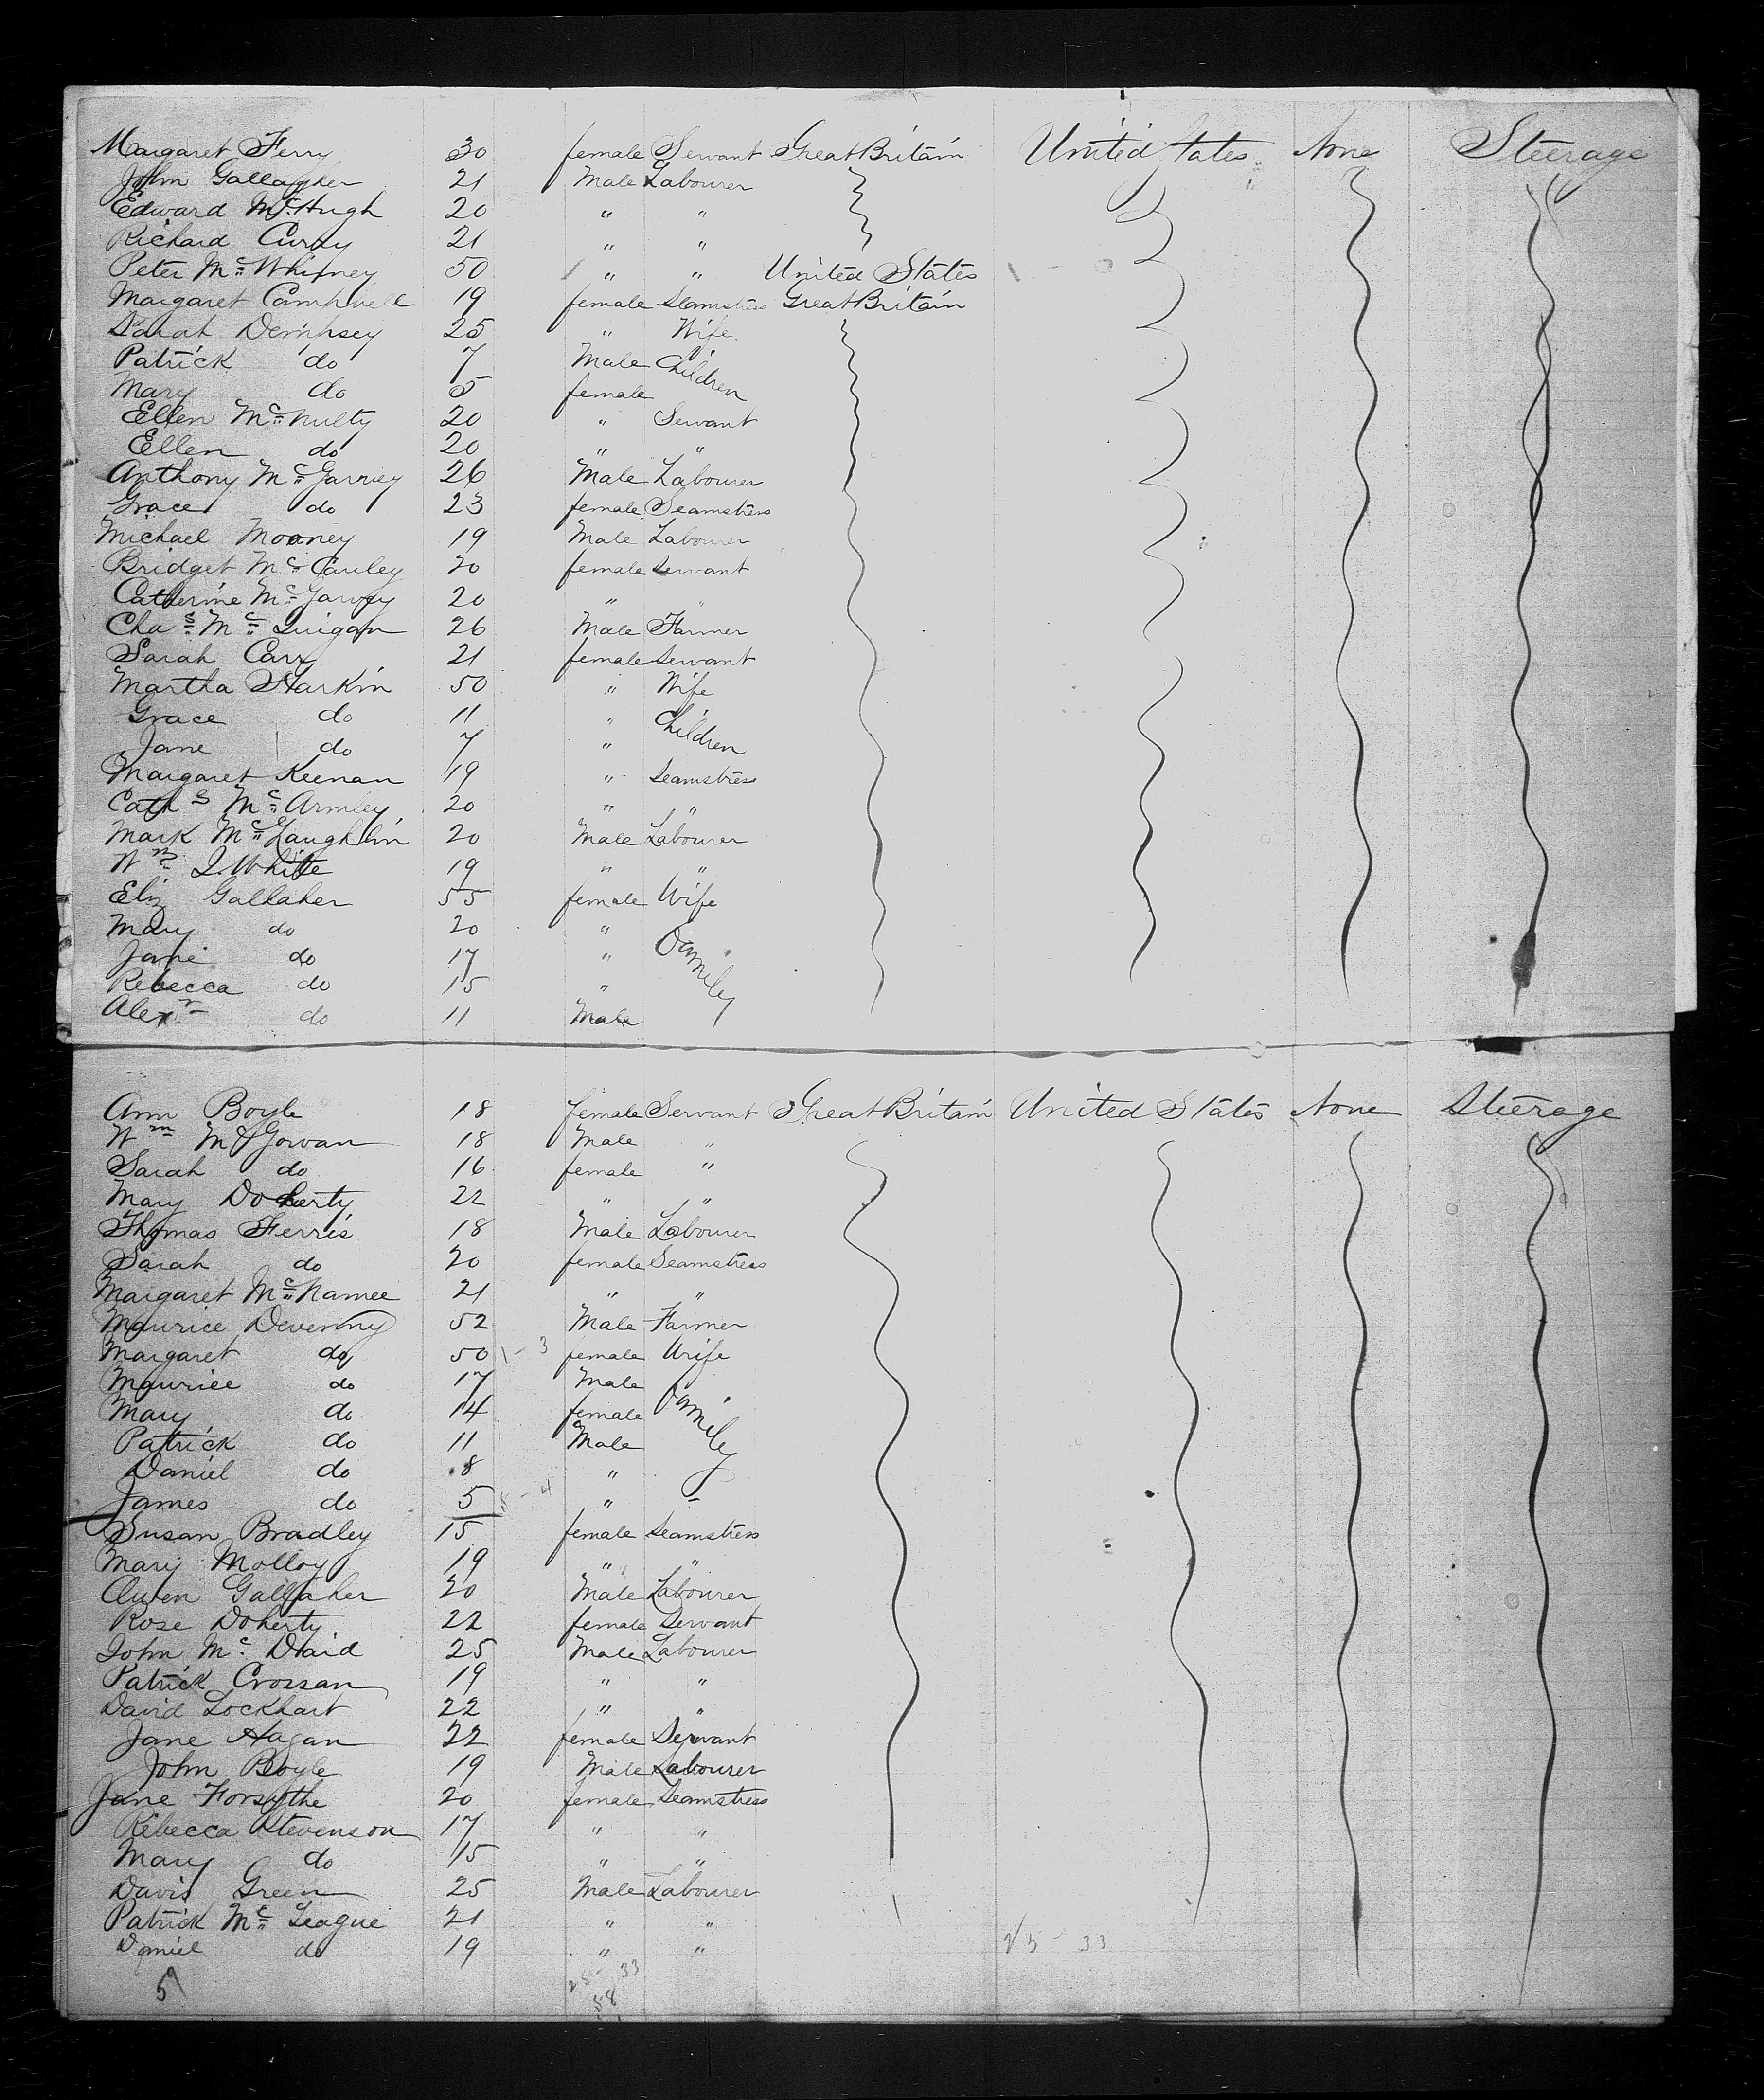 Margaret Ferry 30 female Servant Great Britain United States None Steerage
John Gallagher 21 Male Labourer
Edward Mc Hugh 20 " "
Richard Curry 21 " "
Peter Mc 50 " " United States
Margaret 19 female Seamstress Great Britain
Sarah Demphsey 25 " Wife
Patrick do 7 Male Children
Mary do 5 female
Ellen Mc nulty 20 " Servant
Ellen do 20 " "
Anthony Mc 26 Male Labourer
Grace do 23 female Seamstress
Michael Mooney 19 Male Labourer
Bridget Mc Cauley 20 female Servant
Catherine Mc Garvey 20 " "
Chas Mc Quigan 26 Male Farmer
Sarah Carr 21 female Servant
Martha Harkin 50 " Wife
Grace do 11 " Children
Jane do 7 "
Margaret Keenan 19 " Seamstress
Cath Mc 20 " "
Mark Mc Laughlin 20 Male Labourer
Wm J. White 19 " "
Eliz Gallaher 55 female Wife
Mary do 20 " Family
Jane do 17 "
Rebecca do 15 "
Alexr do 11 Male
Ann Boyle 18 female Servant Great Britain United States None Steerage
Wm McGowan 18 Male "
Sarah do 16 female "
Mary Doherty 22 " "
Thomas Ferris 18 Male Labourer
Sarah do 20 female Seamstress
Margaret Mc Namee 21 " "
Maurice Devenny 52 Male Farmer
Margaret do 50 1 - 3 female Wife
Maurice do 17 Male Family
Mary do 14 female
Patrick do 11 Male
Daniel do 8 "
James do 5 "
Susan Bradley 15 female Seamstress
Mary Molloy 19 " "
Owen Gallaher 20 Male Labourer
Rose Doherty 22 female Servant
John Mc Daid 25 Male Labourer
Patrick Crossan 19 " "
David Lockhart 22 " "
Jane Hagan 22 female Servant
John Boyle 19 Male Labourer
Jane Forsythe 20 female Seamstress
Rebecca Stevenson 17 " "
Mary do 15 " "
Davis Green 25 Male Labourer
Patrick Mc League 21 " "
Daniel do 19 " " 25 - 33
25 - 33
58